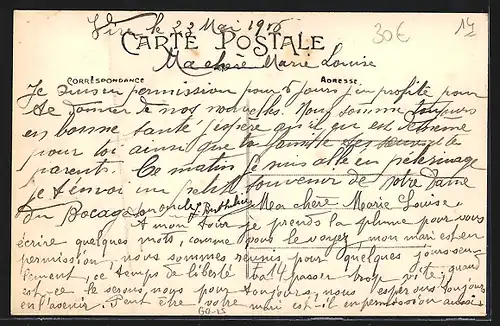 Vire le 23 Mai 1915
30€
CARTE POSTALE
Ma chère Marie Louise
CORRESPONDANCE
ADRESSE
Je suis en permission pour 6 jours j'en profite pour
te donner de nos nouvelles. Nous somme toujours
en bonne santé j'espère qu'il en est de même
pour toi ainsi que la famille
parents. Ce matin je suis allé en pèlerinage
je t'envoi un petit souvenir de Notre Dame
du Bocage Ma chère Marie Louise
A mon tour je prends la plume pour vous
écrire quelques mots, comme vous le voyez, mon mari est en
permission, nous sommes réunis pour quelques jours seu-
lement, ce temps de liberté va passer trop vite, quand
est-ce le serons nous pour toujours, nous espérons toujours
en l'avenir. Peut être votre mari est-il en permission aussi